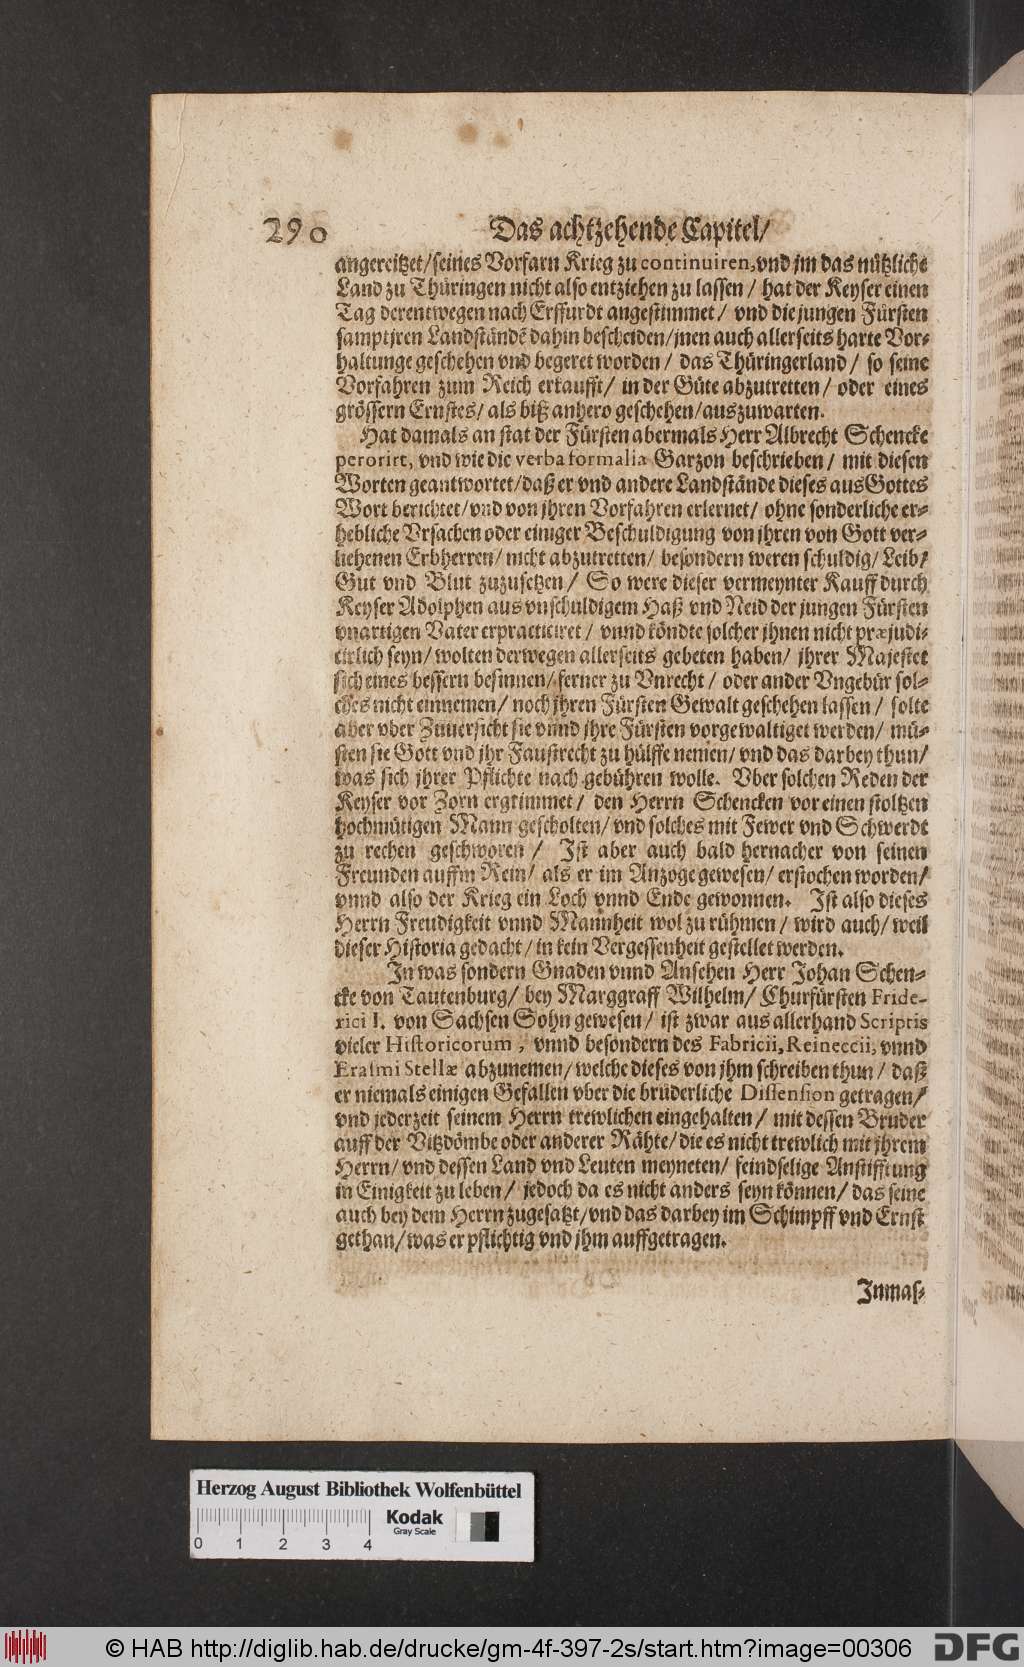 290 Das achtzehende Capitel/
angereitzet/seines Vorfarn Krieg zu continuiren, vnd jm das nützliche
Land zu Thüringen nicht also entziehen zu lassen / hat der Keyser einen
Tag derentwegen nach Erffurdt angestimmet / vnd die jungen Fürsten
sampt jren Landständẽ dahin bescheiden/jnen auch allerseits harte Vor-
haltunge geschehen vnd begeret worden / das Thüringerland / so seine
Vorfahren zum Reich erkaufft/ in der Güte abzutretten/ oder eines
grössern Ernstes/ als biß anhero geschehen/auszuwarten.
Hat damals an stat der Fürsten abermals Herr Albrecht Schencke
perorirt, vnd wie die verba formalia Garzon beschrieben / mit diesen
Worten geantwortet/daß er vnd andere Landstände dieses aus Gottes
Wort berichtet/vnd von jhren Vorfahren erlernet/ ohne sonderliche er-
hebliche Vrsachen oder einiger Beschuldigung von jhren von Gott ver-
liehenen Erbherren/ nicht abzutretten/ besondern weren schuldig/ Leib/
Gut vnd Blut zuzusetzen / So were dieser vermeynter Kauff durch
Keyser Adolphen aus vnschuldigem Haß vnd Neid der jungen Fürsten
vnartigen Vater erpracticiret / vnnd köndte solcher jhnen nicht præjudi-
cirlich seyn/ wolten derwegen allerseits gebeten haben/ jhrer Majestet
sich eines bessern besinnen/ ferner zu Vnrecht / oder ander Vngebür sol-
ches nicht einnemen/ noch jhren Fürsten Gewalt geschehen lassen / solte
aber vber Zuuersicht sie vnnd jhre Fürsten vorgewaltiget werden/ mü-
sten sie Gott vnd jhr Faustrecht zu hülffe nemen/ vnd das darbey thun/
was sich jhrer Pflichte nach gebühren wolle. Vber solchen Reden der
Keyser vor Zorn ergrimmet / den Herrn Schencken vor einen stoltzen
hochmütigen Mann gescholten/ vnd solches mit Fewer vnd Schwerdt
zu rechen geschworen / Ist aber auch bald hernacher von seinen
Freunden auffm Rein/ als er im Anzoge gewesen/ erstochen worden/
vnnd also der Krieg ein Loch vnnd Ende gewonnen. Ist also dieses
Herrn Freudigkeit vnnd Mannheit wol zu rühmen / wird auch/ weil
dieser Historia gedacht / in kein Vergessenheit gestellet werden.
In was sondern Gnaden vnnd Ansehen Herr Johan Schen-
cke von Tautenburg/ bey Marggraff Wilhelm/ Churfürsten Fride-
rici I. von Sachsen Sohn gewesen / ist zwar aus allerhand Scriptis
vieler Historicorum, vnnd besondern des Fabricii, Reineccii, vnnd
Erasmi Stellæ abzunemen/ welche dieses von jhm schreiben thun / daß
er niemals einigen Gefallen vber die brüderliche Dissension getragen/
vnd jederzeit seinem Herrn trewlichen eingehalten / mit dessen Bruder
auff der Vitzdömbe oder anderer Rähte/ die es nicht trewlich mit jhrem
Herrn/ vnd dessen Land vnd Leuten meyneten/ feindselige Anstifftung
in Einigkeit zu leben / jedoch da es nicht anders seyn können/ das seine
auch bey dem Herrn zugesatzt/vnd das darbey im Schimpff vnd Ernst
gethan/was er pflichtig vnd jhm auffgetragen.
Inmas-
Herzog August Bibliothek Wolfenbüttel
Kodak
Gray Scale
0 1 2 3 4
© HAB http://diglib.hab.de/drucke/gm-4f-397-2s/start.htm?image=00306
DFG